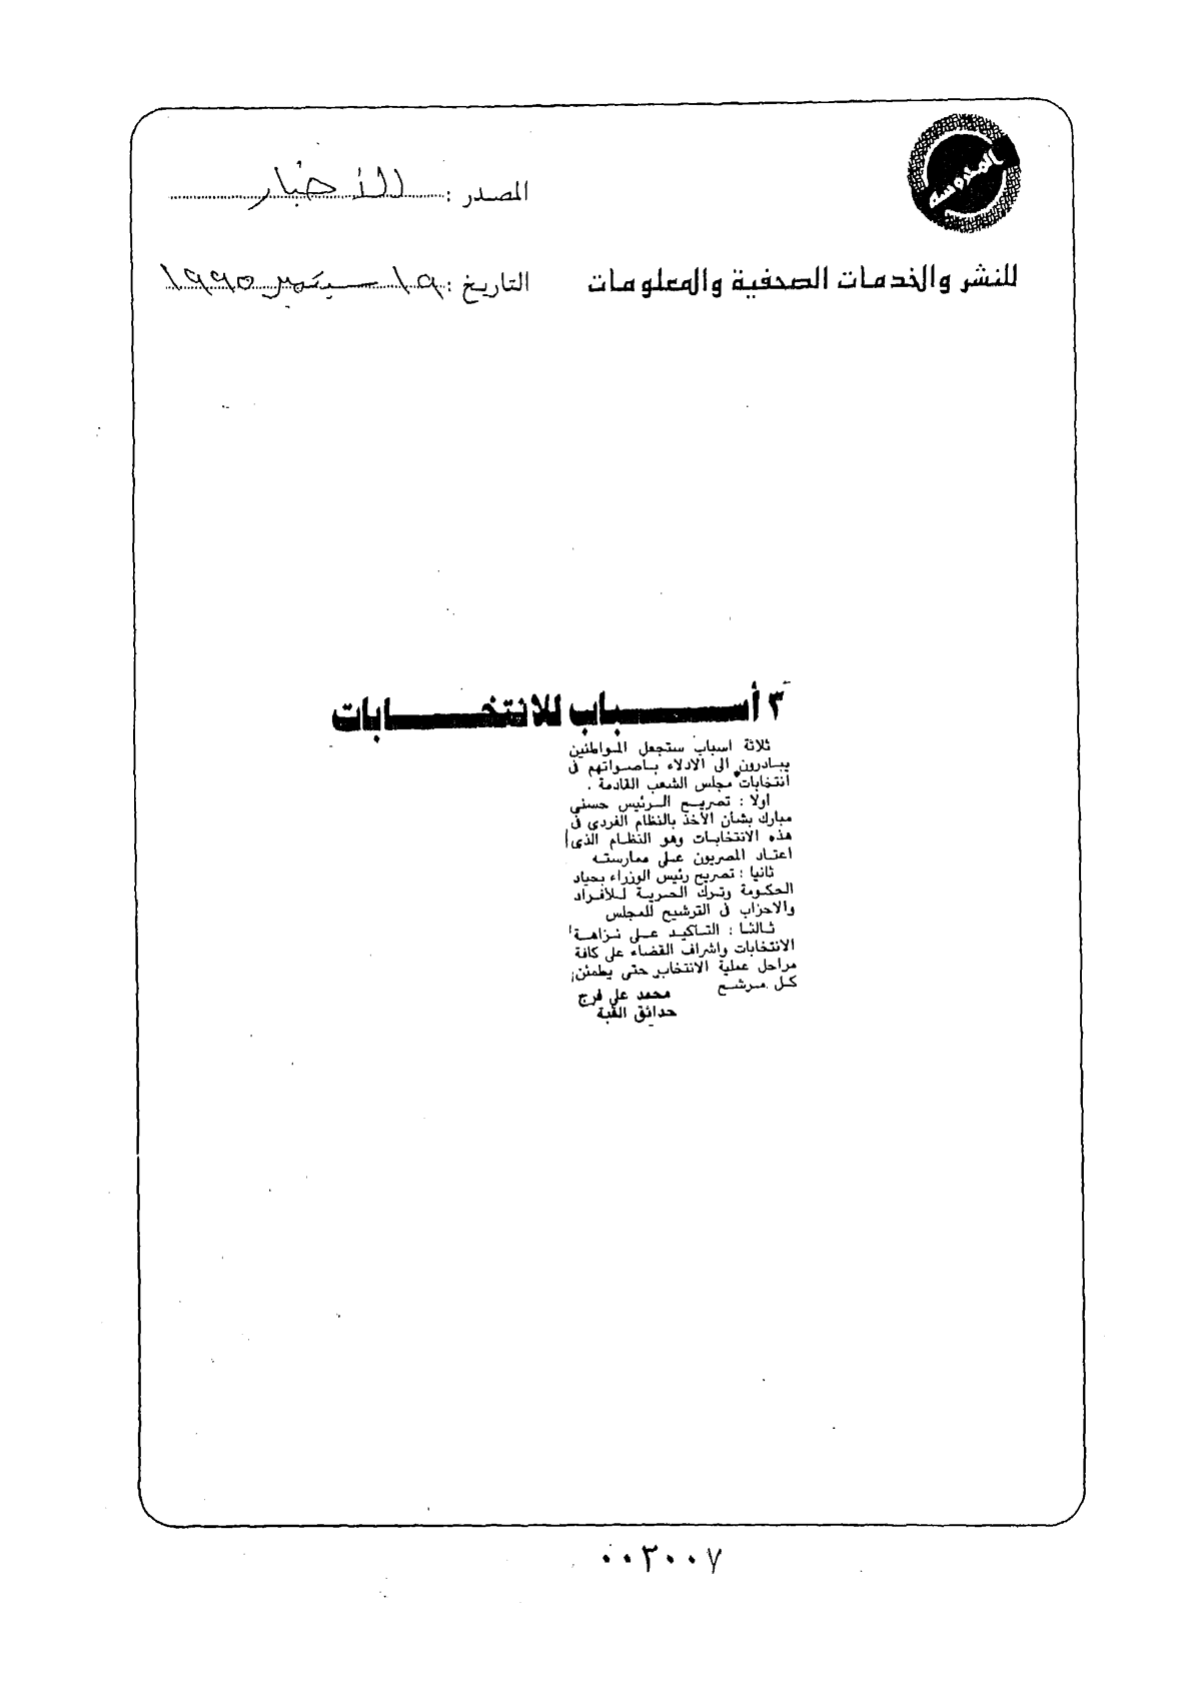 المحروسة
المصدر : الأخبار
للنشر والخدمات الصحفية والمعلومات
التاريخ : ١٩ سبتمبر ١٩٩٥
٣ أسباب للانتخابات
ثلاثة اسباب ستجعل المواطنين
يبادرون الى الادلاء باصواتهم فى
انتخابات مجلس الشعب القادمة .
اولا : تصريح الرئيس حسنى
مبارك بشأن الأخذ بالنظام الفردى فى
هذه الانتخابات وهو النظام الذى
اعتاد المصريون على ممارسته
ثانيا : تصريح رئيس الوزراء بحياد
الحكومة وترك الحرية للأفراد
والاحزاب فى الترشيح للمجلس
ثالثا : التأكيد على نزاهة
الانتخابات واشراف القضاء على كافة
مراحل عملية الانتخاب حتى يطمئن
كل مرشح
محمد على فرج
حدائق القبة
٠٠٣٠٠٧